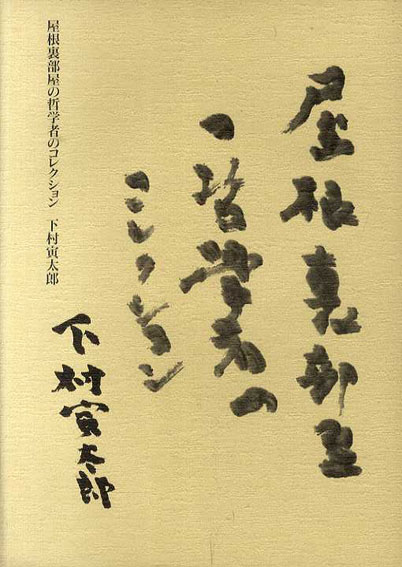 屋根裏部屋
の哲学者の
コレクション
下村寅太郎
屋根裏部屋の哲学者のコレクション 下村寅太郎